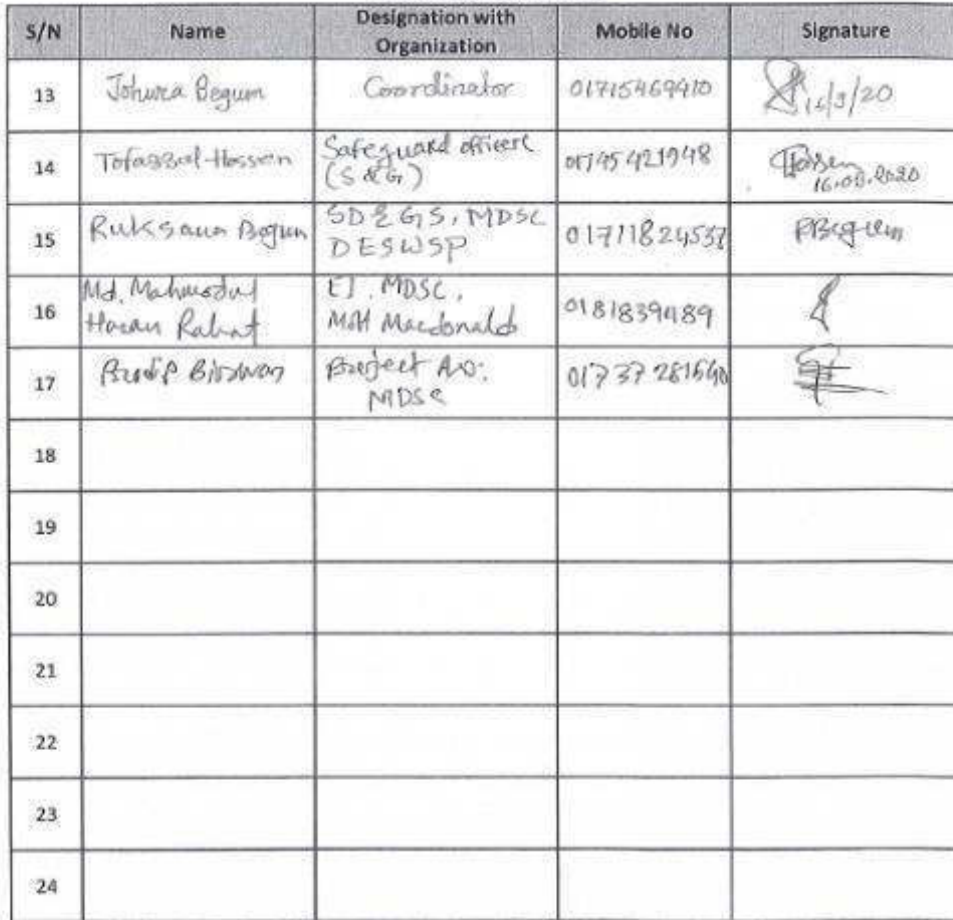 S/N Name Designation with Organization Mobile No Signature
13 Johura Begum Coordinator 01715469910 16/3/20
14 Tofazzal Hossen Safeguard officer (S & G) 01745421948 16.03.2020
15 Ruksana Begum SD & GS, MDSC DESWSP 01711824537 RBegum
16 Md. Mahmodul Hasan Rahat EI. MDSC, Mott Macdonald 01818394189
17 Project MDSC 01737281540
18
19
20
21
22
23
24